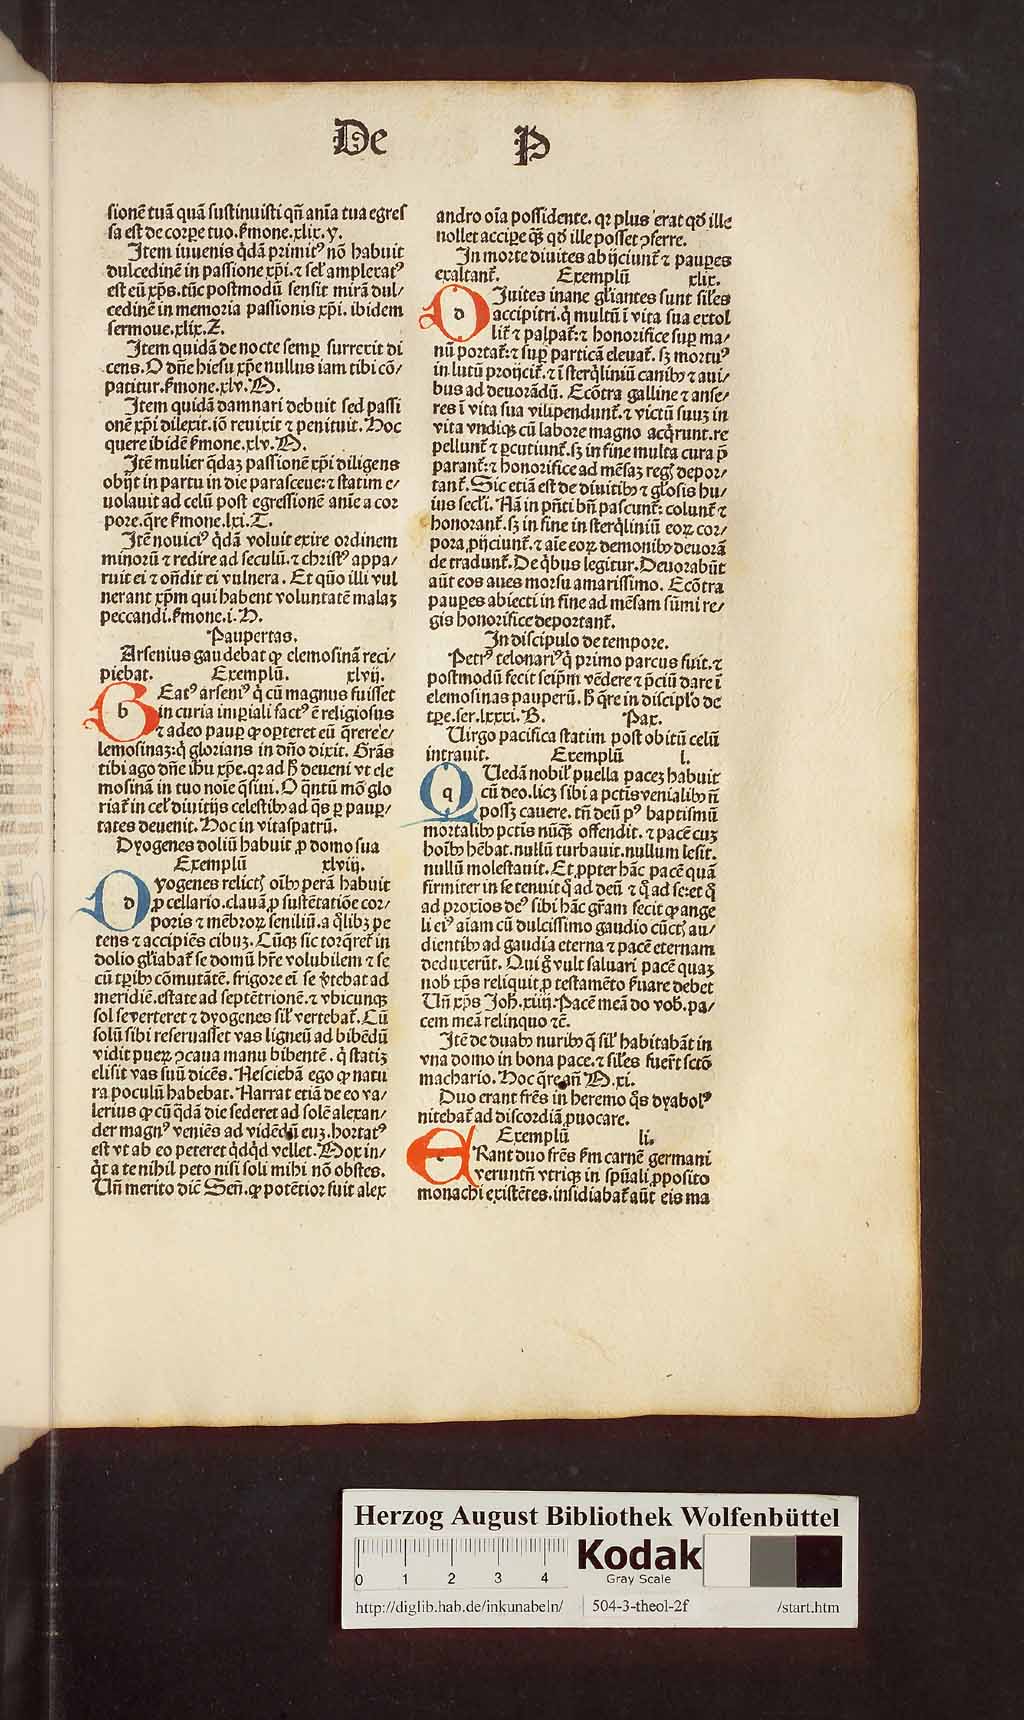 De P
sionē tuā quā sustinuisti qn̄ aīa tua egres
sa est de corꝑe tuo. ẜmone.xlix.y.
Item iuuenis q̇dā primitꝰ nō habuit
dulcedinē in passione xp̄i. ⁊ sel̕ amplexatꝰ
est eū xp̄s. tūc postmodū sensit mirā dul⸗
cedinē in memoria passionis xp̄i. ibidem
sermoue.xlix.Z.
Item quidā de nocte semꝑ surrexit di
cens. O dn̄e hiesu xp̄e nullus iam tibi cō⸗
patitur. ẜmone.xlv.M.
Item quidā damnari debuit sed passi
onē xp̄i dilexit. iō reuixit ⁊ penituit. Hoc
quere ibidē ẜmone.xlv.N.
Itē mulier q̄daꝫ passionē xp̄i diligens
obijt in partu in die parasceue: ⁊ statim e⸗
uolauit ad celū post egressionē anīe a cor
pore. q̄re ẜmone.lxi.T.
Itē nouiciꝰ q̇dā voluit exire ordinem
minorū ⁊ redire ad seculū. ⁊ christꝰ appa⸗
ruit ei ⁊ on̄dit ei vulnera. Et quō illi vul
nerant xp̄m qui habent voluntatē malaꝫ
peccandi. ẜmone.i.H.
Paupertas.
Arsenius gaudebat ꝙ elemosinā reci⸗
piebat. Exemplū. xlvij.
b Eatꝰ arseniꝰ q̇ cū magnus fuisset
in curia imꝑiali factꝰ ē religiosus
⁊ adeo pauꝑ ꝙ oꝑteret eū q̄rere e⸗
lemosinaꝫ: q̇ glorians in dn̄o dixit. Grās
tibi ago dn̄e ihū xp̄e. qꝛ ad ħ deueni vt ele
mosinā in tuo noīe q̄siui. O q̄ntū mō glo
riat̄ in cel̕ diuitijs celestibꝰ ad q̄s ꝑ pauꝑ⸗
tates deuenit. Hoc in vitaspatrū.
Dyogenes doliū habuit ꝓ domo sua
Exemplū xlviij.
d yogenes relict̕ oībꝰ perā habuit
ꝓ cellario. clauā ꝓ sustētatiōe cor⸗
poris ⁊ mēbroꝝ seniliū. a q̇libꝫ pe
tens ⁊ accipiēs cibuꝫ. Cūqꝫ sic torq̄ret̄ in
dolio gl̄iabat̄ se domū hr̄e volubilem ⁊ se
cū tꝑibꝰ cōmutātē. frigore em̄ se v̄tebat ad
meridiē. estate ad septētrionē. ⁊ vbicunqꝫ
sol se verteret ⁊ dyogenes sil̕ vertebat̄. Cū
solū sibi reseruasset vas ligneū ad bibēdū
vidit pueꝝ ↄcaua manu bibentē. q̇ statiꝫ
elisit vas suū dicēs. Nesciebā ego ꝙ natu
ra poculū habebat. Narrat etiā de eo va⸗
lerius ꝙ cū q̇dā die sederet ad solē alexan⸗
der magnꝰ veniēs ad vidēdū euꝫ. hortatꝰ
est vt ab eo peteret q̇dq̇d vellet. Mox in⸗
q̇t a te nihil peto nisi soli mihi nō obstes.
Un̄ merito dic̄ Sen̄. ꝙ potētior fuit alex
andro oīa possidente. qꝛ plus erat qd̕ ille
nollet acciꝑe q̄ꝫ qd̕ ille posset ↄferre.
In morte diuites abijciunt̄ ⁊ pauꝑes
exaltant̄. Exemplū xlix.
d Iuites inane gl̄iantes sunt sil̕es
accipitri. q̇ multū ī vita sua extol
lit̄ ⁊ palpat̄: ⁊ honorifice suꝑ ma⸗
nū portat̄: ⁊ suꝑ particā eleuat̄. sꝫ mortuꝰ
in lutū proijcit̄. ⁊ ī sterq̇liniū canibꝰ ⁊ aui⸗
bus ad deuorādū. Ecōtra galline ⁊ anse⸗
res ī vita sua vilipendunt̄. ⁊ victū suuꝫ in
vita vndiqꝫ cū labore magno acq̇runt. re
pellunt̄ ⁊ ꝑcutiunt̄. sꝫ in fine multa cura p̄
parant̄: ⁊ honorifice ad mēsaꝫ regꝭ depor⸗
tant̄. Sic etiā est de diuitibꝰ ⁊ gl̄osis hu⸗
ius secl̕i. Nā in pn̄ti bn̄ pascunt̄: colunt̄ ⁊
honorant̄. sꝫ in fine in sterq̇liniū eoꝝ cor⸗
pora ꝓijciunt̄. ⁊ aīe eoꝝ demonibꝰ deuorā
de tradunt̄. De q̇bus legitur. Deuorabūt
aūt eos aues morsu amarissimo. Ecōtra
pauꝑes abiecti in fine ad mēsam sūmi re⸗
gis honorifice deportant̄.
In discipulo de tempore.
Petrꝰ telonariꝰ q̇ primo parcus fuit. ⁊
postmodū fecit seip̄m vēdere ⁊ p̄ciū dare ī
elemosinas pauperū. ħ q̄re in discipl̕o de
tꝑe. ser.lxxxi.B. Pax.
Uirgo pacifica statim post obitū celū
intrauit. Exemplū l.
q Uedā nobil̕ puella paceꝫ habuit
cū deo. licꝫ sibi a pctīs venialibꝰ n̄
possꝫ cauere. tn̄ deū pꝰ baptismū
mortalibꝰ pctīs nūq̄ꝫ offendit. ⁊ pacē cuꝫ
hoībꝰ hēbat. nullū turbauit. nullum lesit.
nullū molestauit. Et ꝓpter hāc pacē quā
firmiter in se tenuit q̄ ad deū ⁊ q̄ ad se: et q̄
ad proxīos deꝰ sibi hāc gr̄am fecit ꝙ ange
li eiꝰ aīam cū dulcissimo gaudio cūctꝭ au⸗
dientibꝰ ad gaudia eterna ⁊ pacē eternam
deduxerūt. Qui g̊ vult saluari pacē quaꝫ
nob̄ xp̄s reliquit ꝓ testamēto ẜuare debet
Un̄ xp̄s Joh̄.xiiij. Pacē meā do vob̄. pa⸗
cem meā relinquo ⁊c̄.
Itē de duabꝰ nuribꝰ q̄ sil̕ habitabāt in
vna domo in bona pace. ⁊ sil̕es fuer̄t sctō
machario. Hoc q̄re an̄ M.xi.
Duo erant fr̄es in heremo q̄s dyabolꝰ
nitebat̄ ad discordiā ꝓuocare.
Exemplū li.
e Rant duo fr̄es ẜm carnē germani
veruntn̄ vtriqꝫ in spūali ꝓposito
monachi existētes. insidiabat̄ aūt eis ma
Herzog August Bibliothek Wolfenbüttel
0 1 2 3 4
Kodak
Gray Scale
http://diglib.hab.de/inkunabeln/ 504-3-theol-2f /start.htm